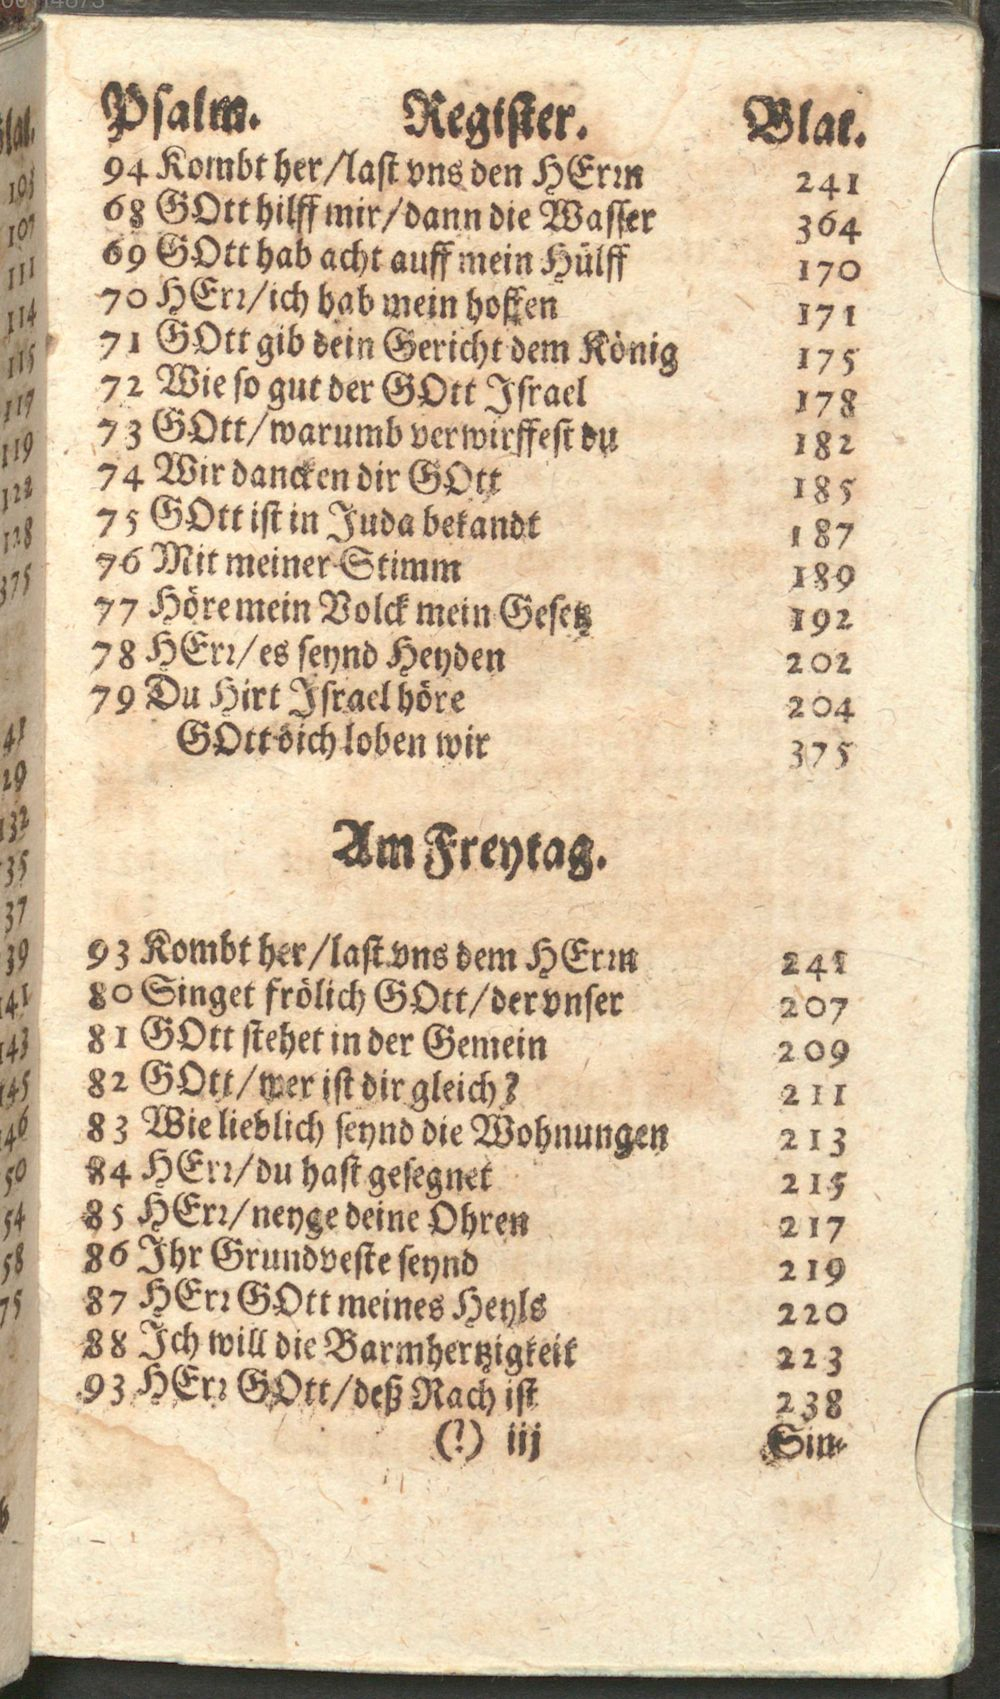 Psalm. Register. Blat.
94 Kombt her/last vns den HErꝛn 241
68 GOtt hilff mir/dann die Wasser 364
69 GOtt hab acht auff mein Hülff 170
70 HErꝛ/ich hab mein hoffen 171
71 GOtt gib dein Gericht dem König 175
72 Wie so gut der GOtt Jsrael 178
73 GOtt/warumb verwirffest du 182
74 Wir dancken dir GOtt 185
75 GOtt ist in Juda bekandt 187
76 Mit meiner Stimm 189
77 Höre mein Volck mein Gesetz 192
78 HErꝛ/es seynd Heyden 202
79 Du Hirt Jsrael höre 204
GOtt dich loben wir 375
Am Freytag.
93 Kombt her/last vns dem HErꝛn 241
80 Singet frölich GOtt/der vnser 207
81 GOtt stehet in der Gemein 209
82 GOtt/wer ist dir gleich? 211
83 Wie lieblich seynd die Wohnungen 213
84 HErꝛ/du hast gesegnet 215
85 HErꝛ/neyge deine Ohren 217
86 Jhr Grundveste seynd 219
87 HErꝛ GOtt meines Heyls 220
88 Jch will die Barmhertzigkeit 223
93 HErꝛ GOtt/deß Rach ist 238
(?) iij Sin-